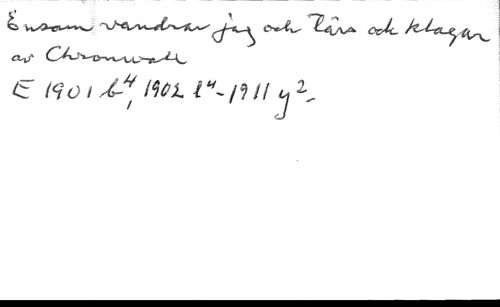 Ensam vandrar jag och lärs och klagar
av Chronwall
E 1901 b⁴, 1902 l⁴-1911 y²-